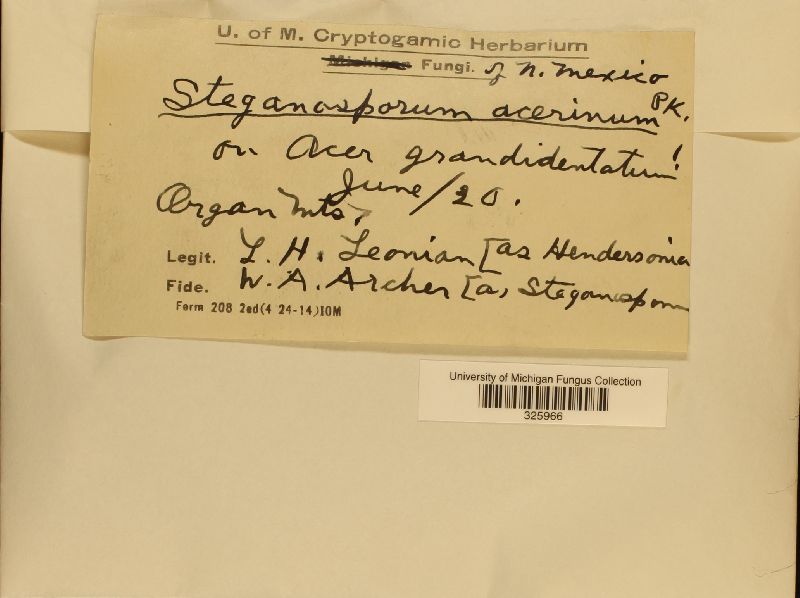 U. of M. Cryptogamic Herbarium
Michigan Fungi. of N. Mexico
Steganosporum acerinum PK.
on Acer grandidentatum!
June/20.
Organ Mts.
Legit. L. H. Leonian [as Hendersonia
Fide. W. A. Archer [as Steganosporum
Form 208 2ed(4 24-14)IOM
University of Michigan Fungus Collection
325966